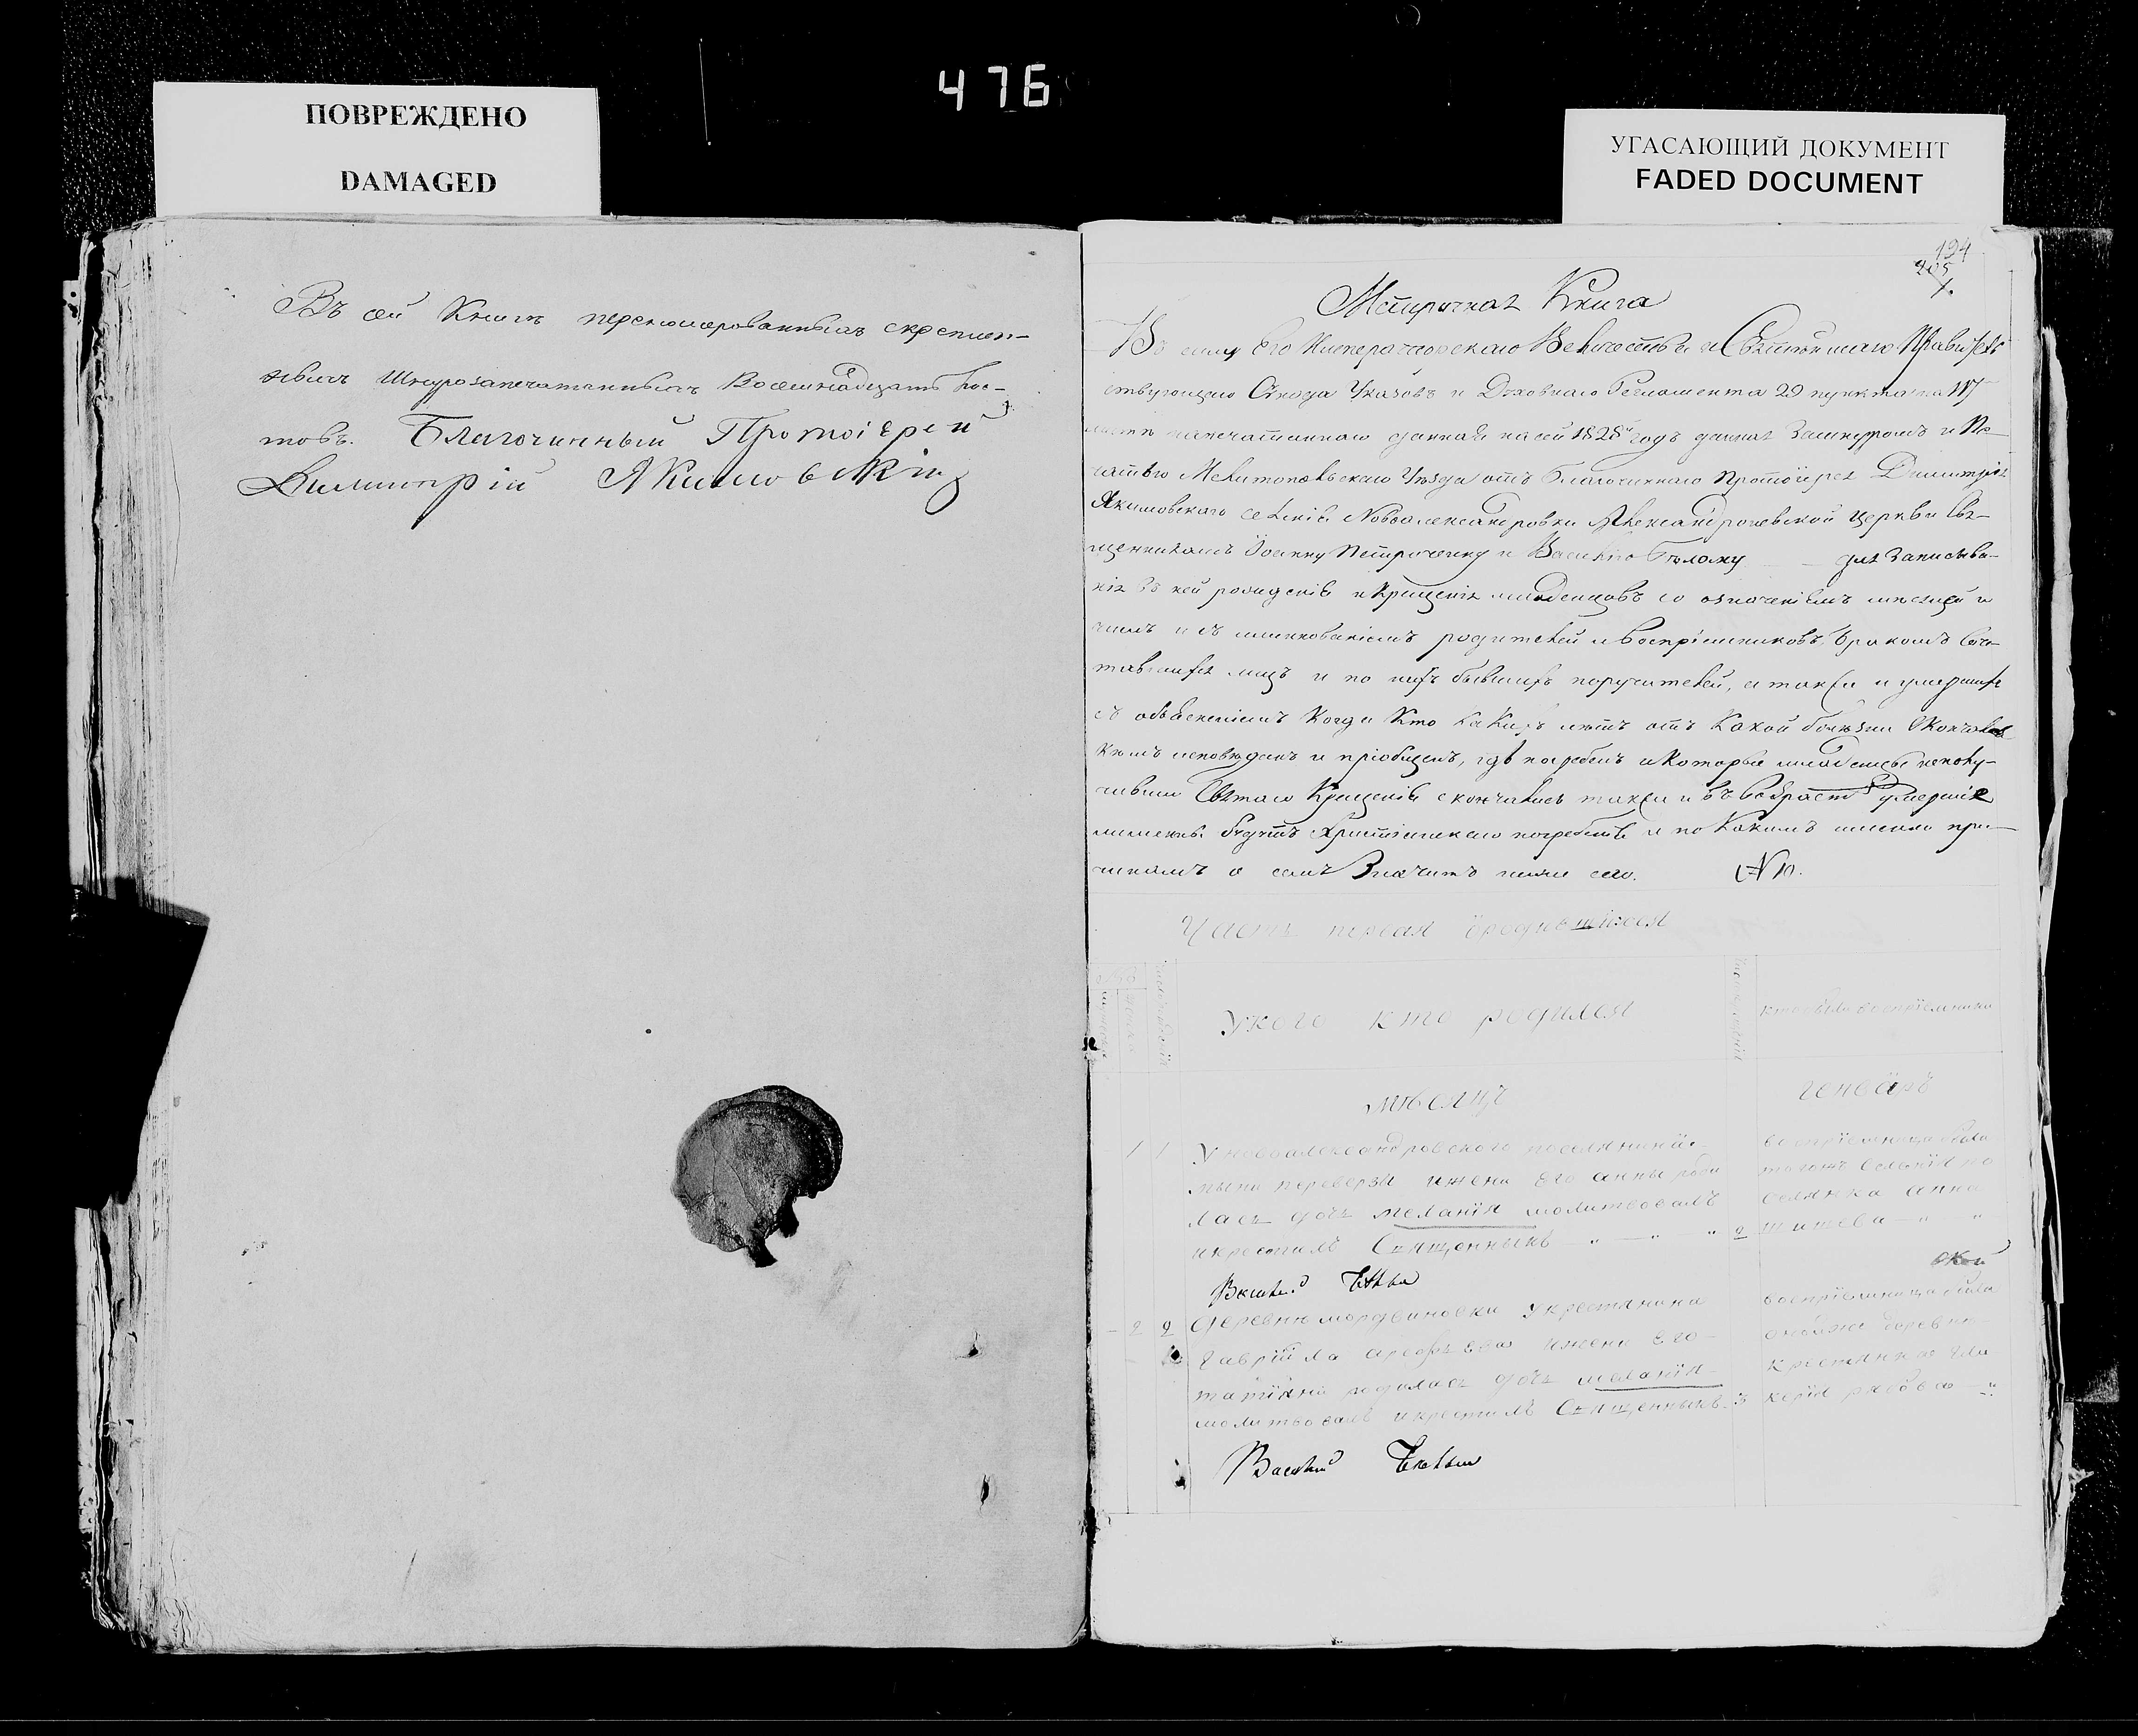 476
ПОВРЕЖДЕНО
DAMAGED
УГАСАЮЩИЙ ДОКУМЕНТ
FADED DOCUMENT
Въ сей Книгѣ перенумерованныхъ скреплен-
ныхъ Шнурозапечатанныхъ Восемнадцать Лис-
товъ. Благочинный Протоіерей
Димитрій Якимовскій
194
205
1.
Метричная Книга
Въ силу Его Императорскаго Величества и Святѣйшаго Правитель
ствующаго Сѵнода Указовъ и Духовнаго Регламента 29 пункта на
листѣ напечатаннаго данная на сей 1828й годъ данная Зашнуромъ и Пе-
чатью Мелитопольскаго Уѣзда отъ Благочиннаго Протоіерея Димитрія
Якимовскаго селенія Новоалександровки Александроневской церкви Свя-
щенникамъ Іоанну Петриченку и Василію Бѣлому для Записыва-
нія въ ней рожденія и Крещенія младенцовъ со означеніемъ месяцей и
чиселъ и съ имянованіемъ родителей и Воспріемниковъ, бракомъ Соче-
тавшихся лицъ и по нихъ бывшихъ поручителей, а также и умершихъ
съ объясненіемъ Когда Кто Какихъ лѣтъ отъ Какой болѣзни Скончался
кѣмъ исповѣданъ и пріобщенъ, гдѣ погребенъ и Которые младенцы неполу-
чивши Святаго Крещенія скончались также и въ возрастѣ умершіе
лишены будутъ Христіанскаго погребенія и по Какимъ именно при-
чинамъ о семъ Значитъ ниже сего. № 10.
Часть первая ѡродившихся
У кого кто родился
кто были воспріемники
Мѣсяцъ
Генваръ
1 1 У новоалександровского поселянина
переверзи и жены Его анны роди
лась дочь меланія молитвовалъ
и крестилъ Священникъ 2
Василій Бѣлый
воспріемница была
тогожъ селенія по
селянка анна
2 2 деревни мордвиновки у крестянина
Гавріила арефьева и жены Его
татіяны родилась дочь меланія
молитвовалъ и крестилъ Священникъ 3
Василій Бѣлый
воспріемница была
оной же деревни
крестянка гли
керія рябова